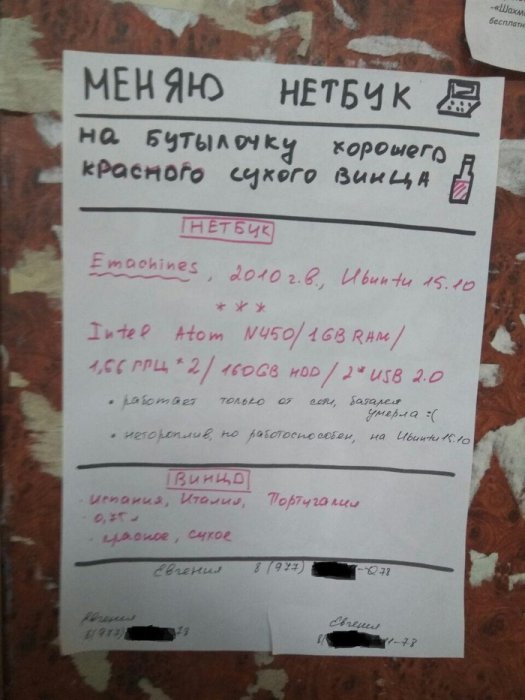 -«Шахм
бесплатн
МЕНЯЮ НЕТБУК
на бутылочку хорошего
красного сухого винца
НЕТБУК
Emachines, 2010 г.в., Ubuntu 15.10
* * *
Intel Atom N450/1GB RAM/
1,66 ГГЦ *2/160GB HDD/2*USB 2.0
• работает только от сети, батарея
умерла :(
• нетороплив, но работоспособен, на Ubuntu 15.10
ВИНЦО
· Испания, Италия, Португалия
· 0,75 л
· красное, сухое
Евгения 8(977)
Евгения
8(977) 78
Евгения
8( -78